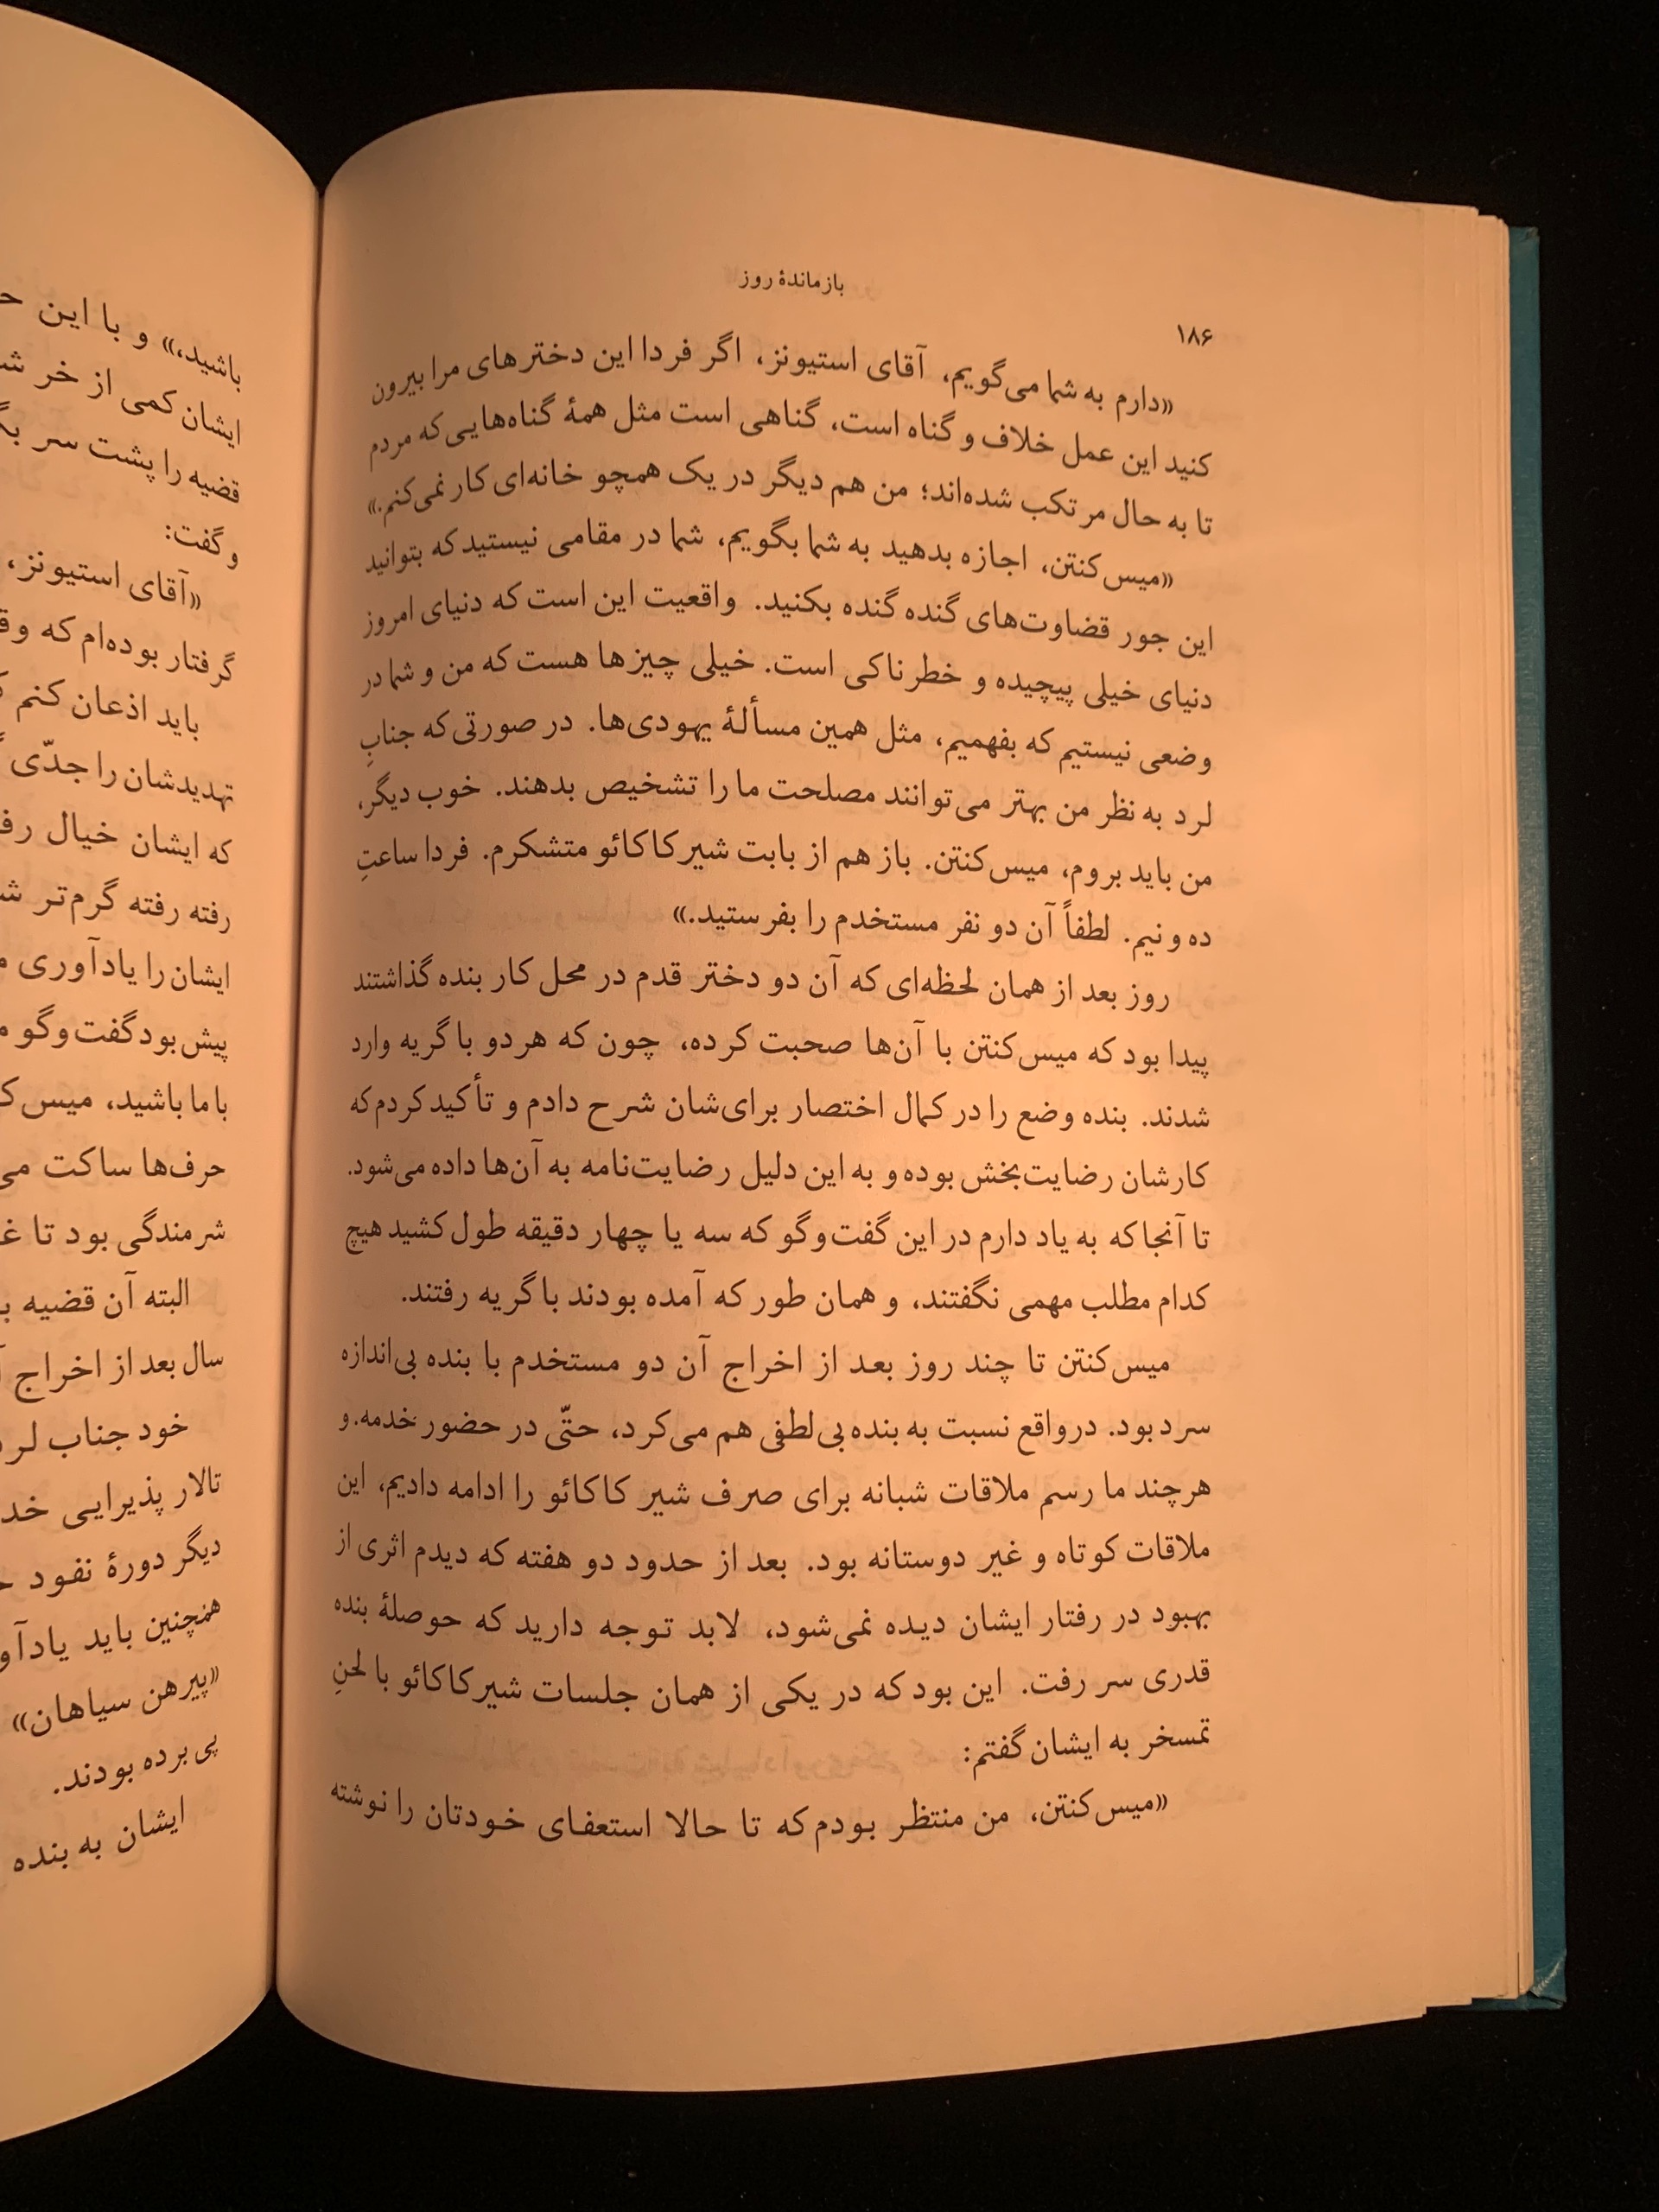 بازماندهٔ روز
۱۸۶
«دارم به شما می‌گویم، آقای استیونز، اگر فردا این دخترهای مرا بیرون
کنید این عمل خلاف و گناه است، گناهی است مثل همهٔ گناه‌هایی که مردم
تا به حال مرتکب شده‌اند؛ من هم دیگر در یک همچو خانه‌ای کار نمی‌کنم.»
«میس کنتن، اجازه بدهید به شما بگویم، شما در مقامی نیستید که بتوانید
این جور قضاوت‌های گنده گنده بکنید. واقعیت این است که دنیای امروز
دنیای خیلی پیچیده و خطرناکی است. خیلی چیزها هست که من و شما در
وضعی نیستیم که بفهمیم، مثل همین مسألهٔ یهودی‌ها. در صورتی که جنابِ
لرد به نظر من بهتر می‌توانند مصلحت ما را تشخیص بدهند. خوب دیگر،
من باید بروم، میس کنتن. باز هم از بابت شیرکاکائو متشکرم. فردا ساعتِ
ده و نیم. لطفاً آن دو نفر مستخدم را بفرستید.»
روز بعد از همان لحظه‌ای که آن دو دختر قدم در محل کار بنده گذاشتند
پیدا بود که میس کنتن با آن‌ها صحبت کرده، چون که هر دو با گریه وارد
شدند. بنده وضع را در کمال اختصار برای‌شان شرح دادم و تأکید کردم که
کارشان رضایت‌بخش بوده و به این دلیل رضایت‌نامه به آن‌ها داده می‌شود.
تا آنجا که به یاد دارم در این گفت‌وگو که سه یا چهار دقیقه طول کشید هیچ
کدام مطلب مهمی نگفتند، و همان طور که آمده بودند با گریه رفتند.
میس کنتن تا چند روز بعد از اخراج آن دو مستخدم با بنده بی‌اندازه
سرد بود. درواقع نسبت به بنده بی‌لطفی هم می‌کرد، حتّی در حضور خدمه. و
هرچند ما رسم ملاقات شبانه برای صرف شیر کاکائو را ادامه دادیم، این
ملاقات کوتاه و غیر دوستانه بود. بعد از حدود دو هفته که دیدم اثری از
بهبود در رفتار ایشان دیده نمی‌شود، لابد توجه دارید که حوصلهٔ بنده
قدری سر رفت. این بود که در یکی از همان جلسات شیرکاکائو با لحنِ
تمسخر به ایشان گفتم:
«میس کنتن، من منتظر بودم که تا حالا استعفای خودتان را نوشته
باشید،» و با این
ایشان کمی از خر
قضیه را پشت سر
و گفت:
«آقای استیونز،
گرفتار بوده‌ام که
باید اذعان کنم
تهدیدشان را جدّی
که ایشان خیال
رفته رفته گرم‌تر
ایشان را یادآوری
پیش بود گفت‌وگو
با ما باشید، میس
حرف‌ها ساکت
شرمندگی بود تا
البته آن قضیه
سال بعد از اخراج
خود جناب
تالار پذیرایی
دیگر دورهٔ نفود
همچنین باید
«پیرهن سیاهان»
پی برده بودند.
ایشان به بنده